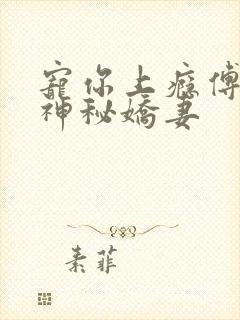 寵你上癮傅
神秘嬌妻
素菲